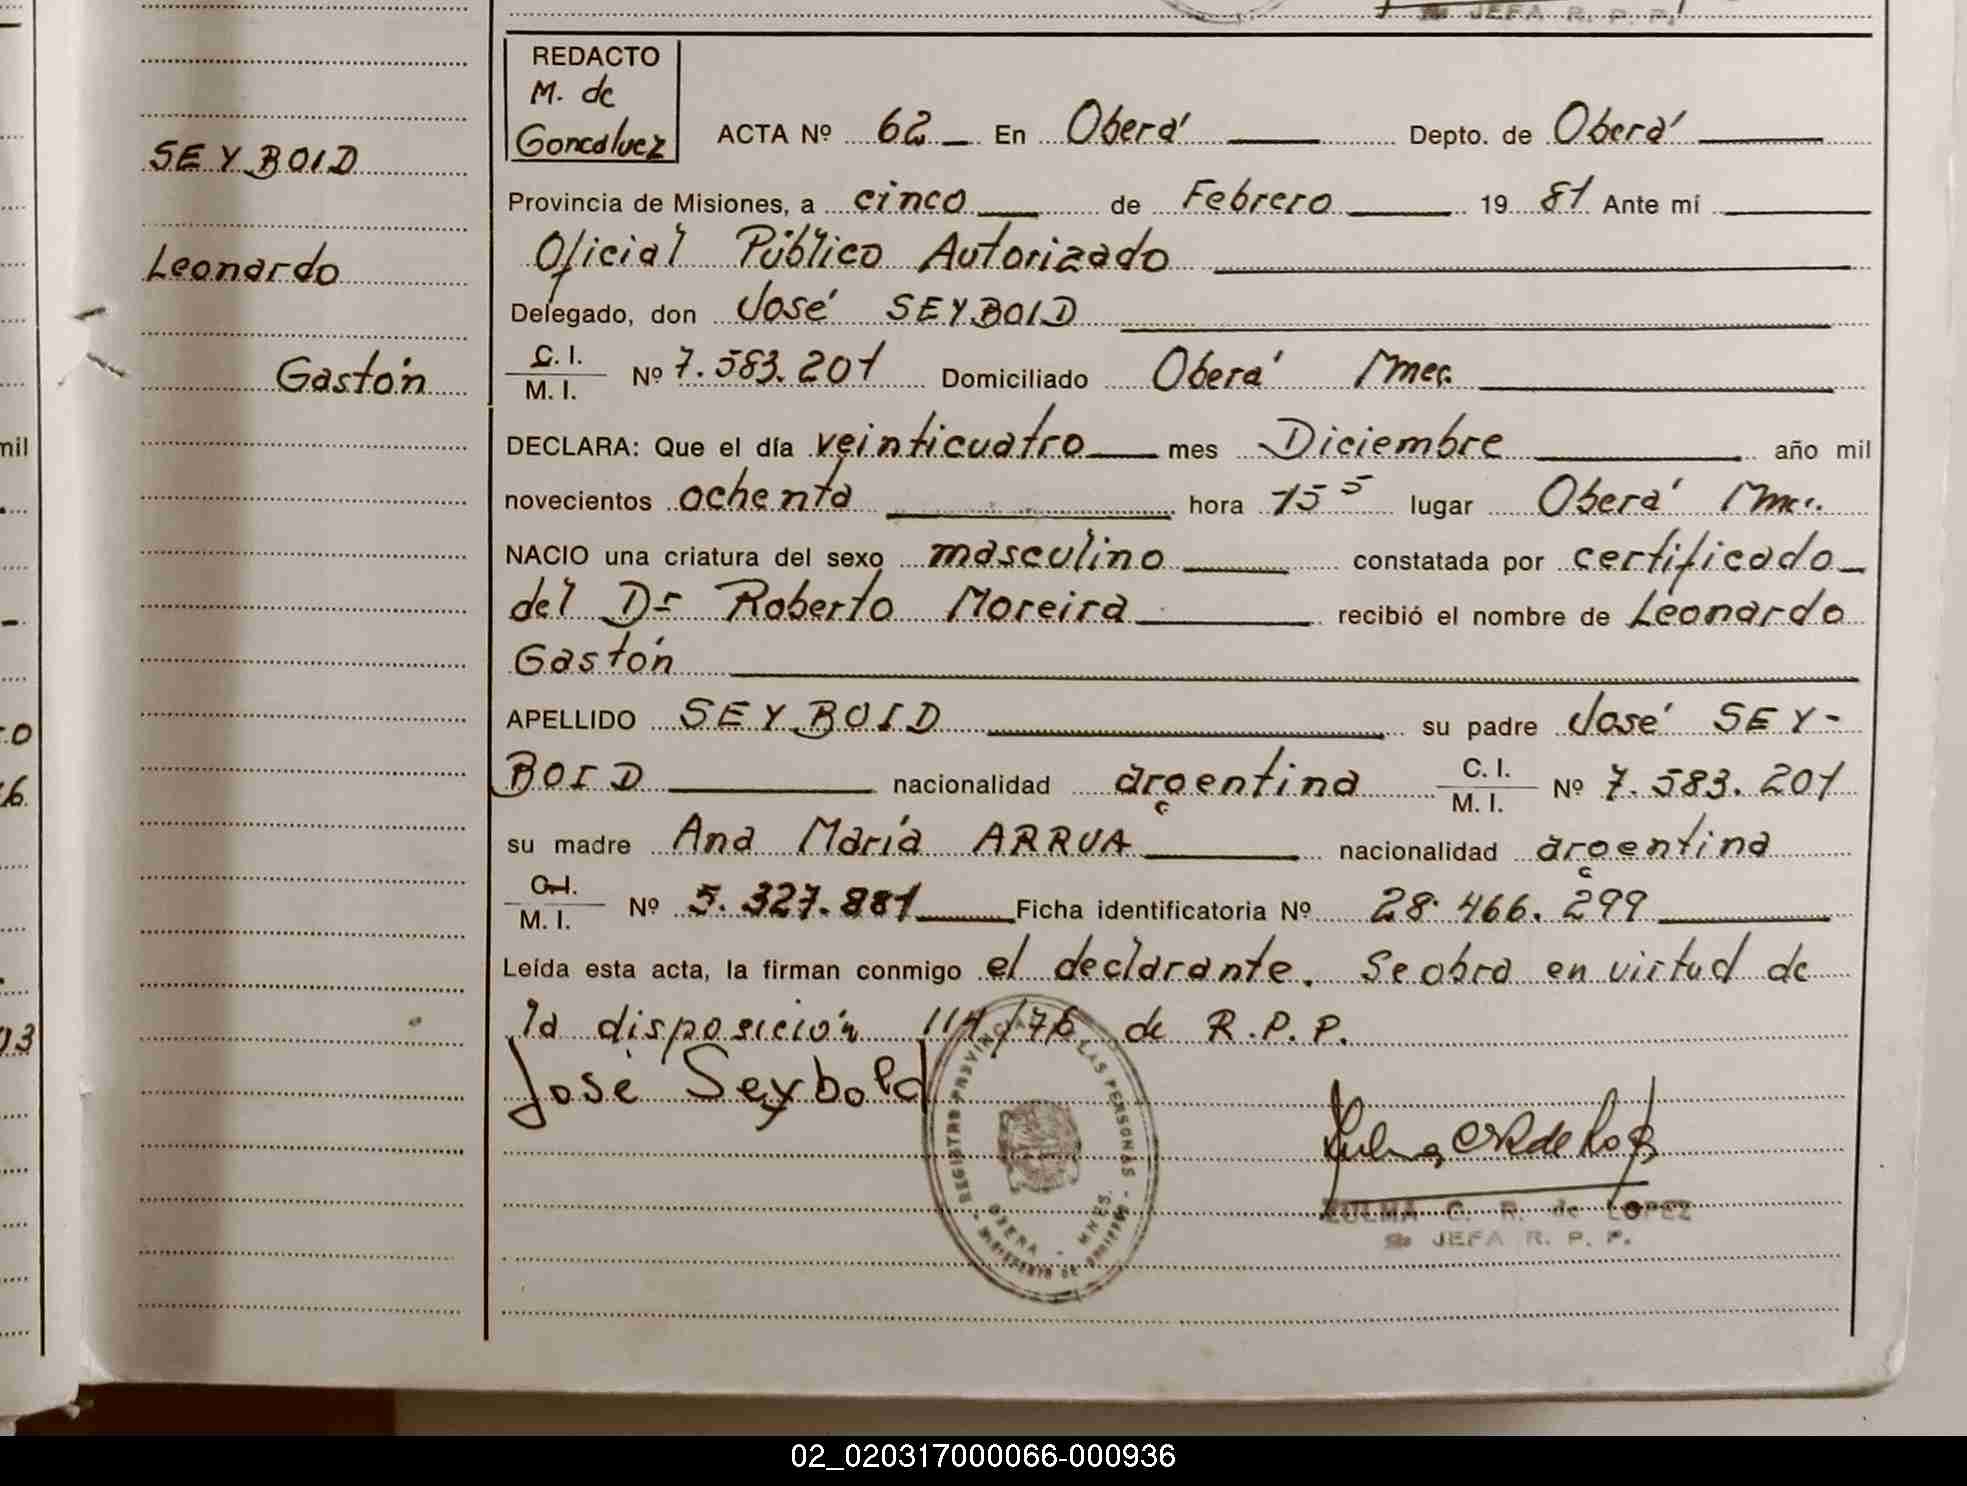 JEFA R. P. P.
REDACTO
M. de
Goncalvez
ACTA Nº 62 En Oberá Depto. de Oberá
SEYBOID
Provincia de Misiones, a cinco de Febrero 19 81 Ante mí
Oficial Público Autorizado
Leonardo
Delegado, don José SEYBOID
C. I.
M. I. Nº 7.583.201 Domiciliado Oberá Mnes.
Gastón
DECLARA: Que el día veinticuatro mes Diciembre año mil
novecientos ochenta hora 15 5 lugar Oberá Mnes.
NACIO una criatura del sexo masculino constatada por certificado
del Dr Roberto Moreira recibió el nombre de Leonardo
Gastón
APELLIDO SEYBOID su padre José SEY-
BOID nacionalidad argentina C. I. M. I. Nº 7.583.201
su madre Ana María ARRUA nacionalidad argentina
C. I.
M. I. Nº 5.327.881 Ficha identificatoria Nº 28.466.299
Leída esta acta, la firman conmigo el declarante. Se obra en virtud de
la disposición 114/76 de R.P.P.
José Seybold
REGISTRO PROVINCIAL LAS PERSONAS
OBERA - MNES.
MINISTERIO DE GOBIERNO
ZULMA C. R. de LOPEZ
JEFA R. P. P.
mil
02_020317000066-000936